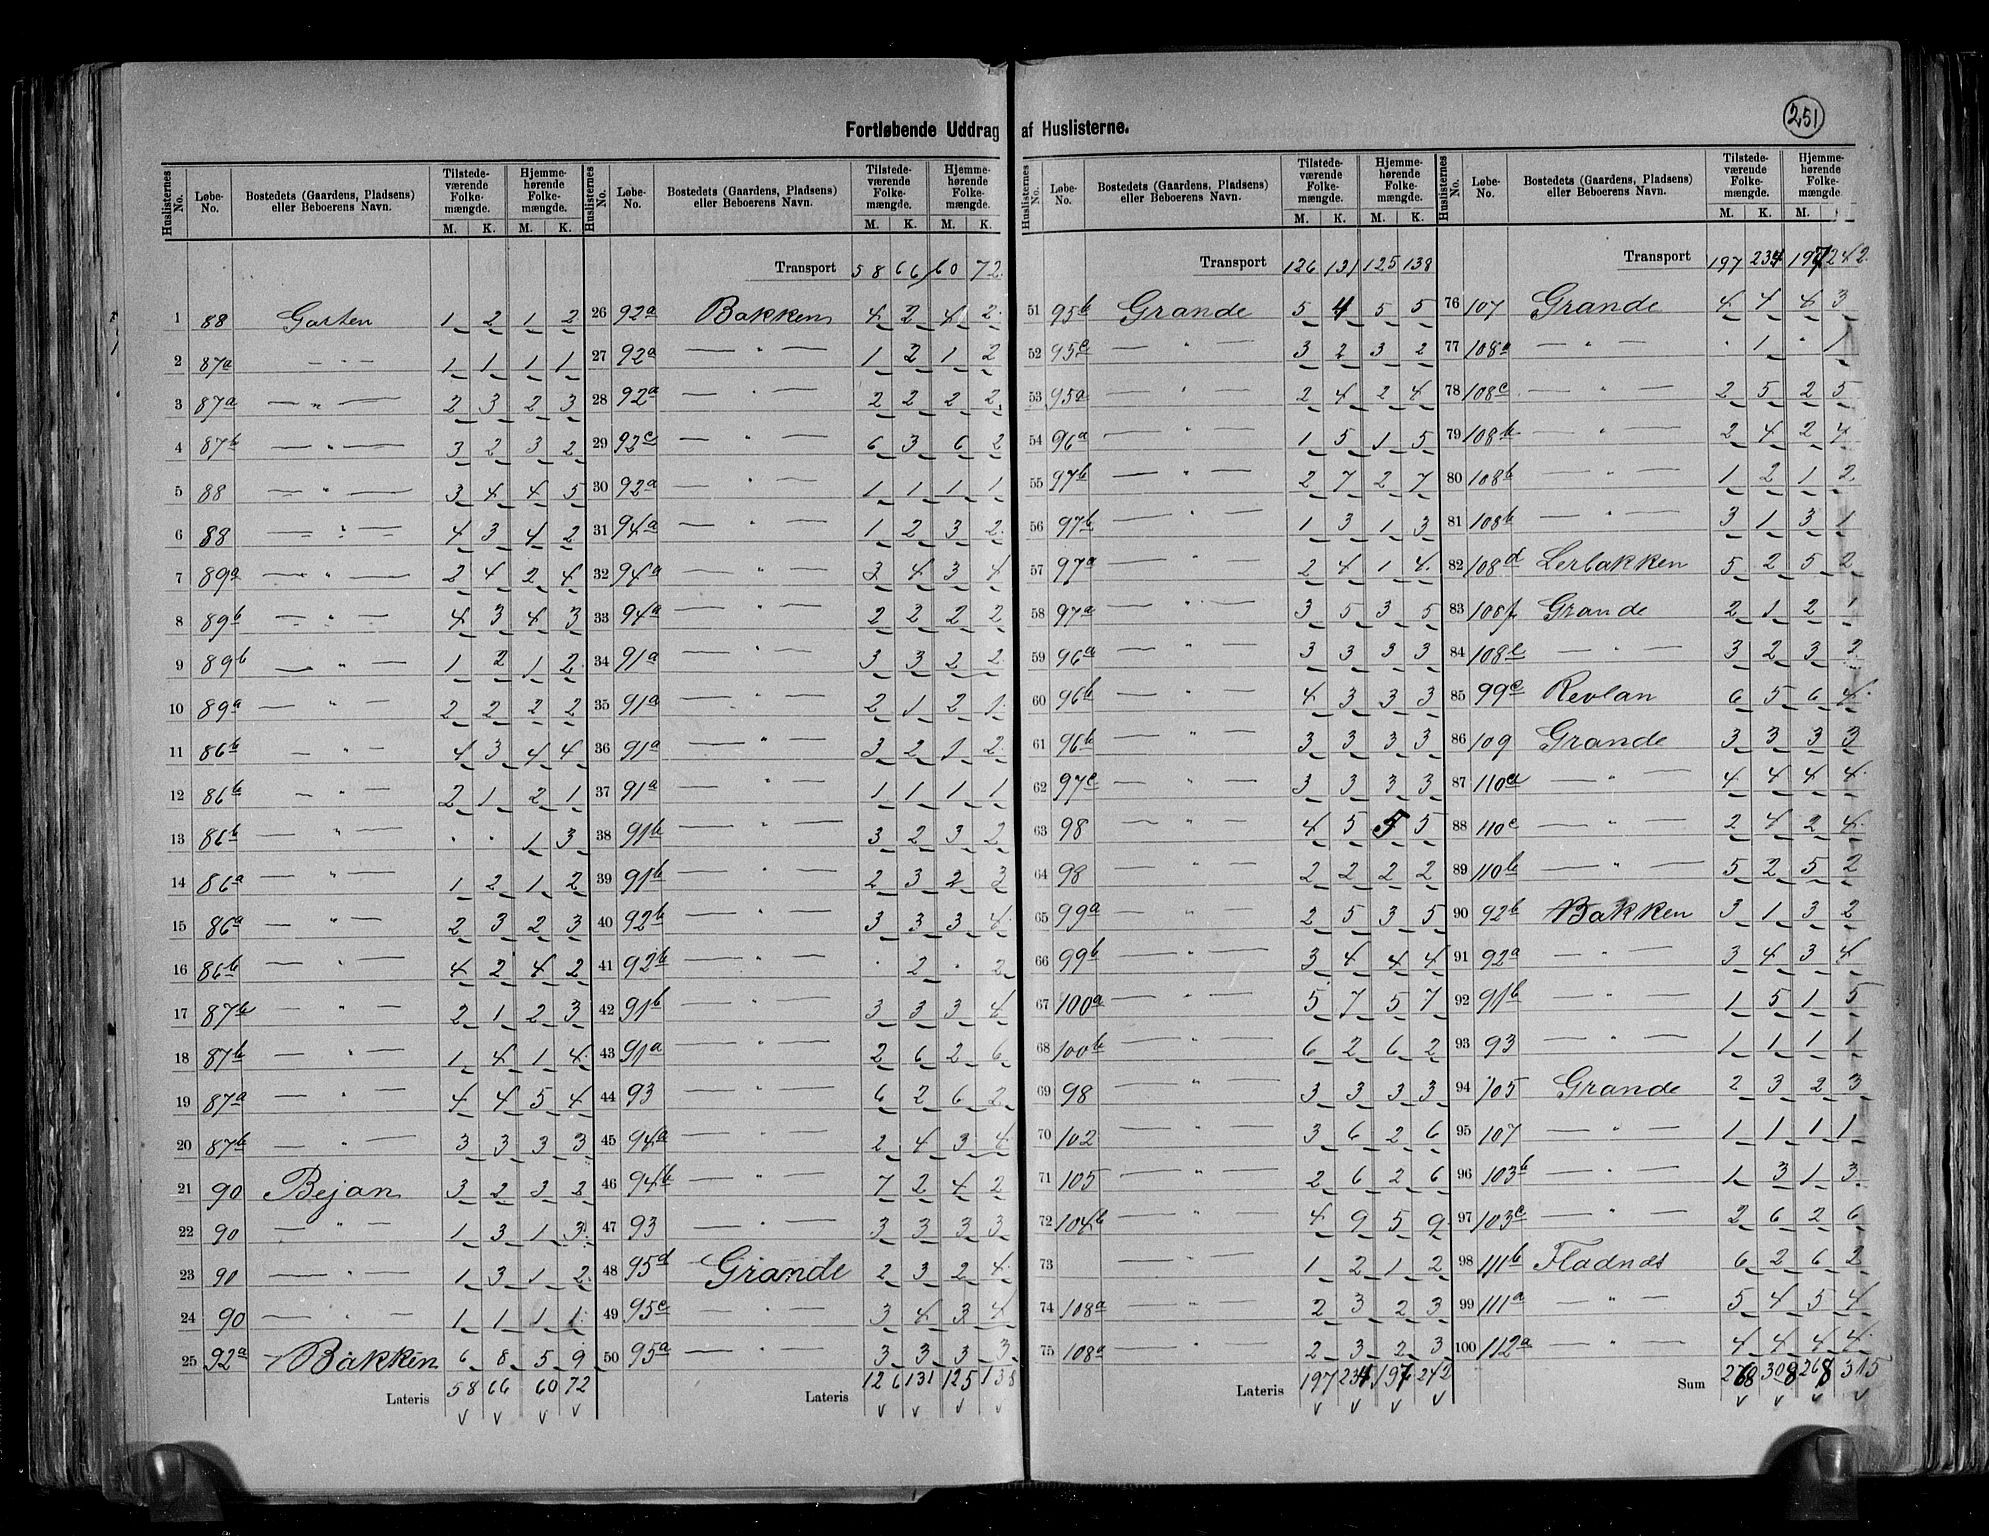 251
Fortløbende Uddrag af Huslisterne.
Huslisternes No. | Løbe-No. | Bostedets (Gaardens, Pladsens) eller Beboerens Navn. | Tilstedeværende Folkemængde. M. K. | Hjemmehørende Folkemængde. M. K.
1 88 Garten 1 2 1 2
2 87a — " — 1 1 1 1
3 87a — " — 2 3 2 3
4 87b — " — 3 2 3 2
5 88 — " — 3 4 4 5
6 88 — " — 4 3 4 2
7 89a — " — 2 4 2 4
8 89b — " — 4 3 4 3
9 89b — " — 1 2 1 2
10 89a — " — 2 2 2 2
11 86b — " — 4 3 4 4
12 86b — " — 2 1 2 1
13 86b — " — . . 1 3
14 86a — " — 1 2 1 2
15 86a — " — 2 3 2 3
16 86b — " — 4 2 4 2
17 87b — " — 2 1 2 3
18 87b — " — 1 4 1 4
19 87a — " — 4 4 5 4
20 87b — " — 3 3 3 3
21 90 Bejan 3 2 3 2
22 90 — " — 1 3 1 3
23 90 — " — 1 3 1 2
24 90 — " — 1 1 1 1
25 92a Bakken 6 8 5 9
Lateris 58 66 60 72
Huslisternes No. | Løbe-No. | Bostedets (Gaardens, Pladsens) eller Beboerens Navn. | Tilstedeværende Folkemængde. M. K. | Hjemmehørende Folkemængde. M. K.
Transport 58 66 60 72
26 92a Bakken 4 2 4 2
27 92a — " — 1 2 1 2
28 92a — " — 2 2 2 2
29 92c — " — 6 3 6 2
30 92a — " — 1 1 1 1
31 94a — " — 1 2 3 2
32 94a — " — 3 4 3 4
33 94a — " — 2 2 2 2
34 91a — " — 3 3 2 2
35 91a — " — 2 1 2 1
36 91a — " — 3 2 1 2
37 91a — " — 1 1 1 1
38 91b — " — 3 2 3 2
39 91b — " — 2 3 2 3
40 92b — " — 3 3 3 4
41 92b — " — . 2 . 2
42 91b — " — 3 3 3 4
43 91a — " — 2 6 2 6
44 93 — " — 6 2 6 2
45 94a — " — 2 4 3 4
46 94b — " — 7 2 4 2
47 93 — " — 3 3 3 3
48 95d Grande 2 3 2 4
49 95c — " — 3 4 3 4
50 95a — " — 3 3 3 3
Lateris 126 131 125 138
Huslisternes No. | Løbe-No. | Bostedets (Gaardens, Pladsens) eller Beboerens Navn. | Tilstedeværende Folkemængde. M. K. | Hjemmehørende Folkemængde. M. K.
Transport 126 131 125 138
51 95b Grande 5 4 5 5
52 95c — " — 3 2 3 2
53 95a — " — 2 4 2 4
54 96a — " — 1 5 1 5
55 97b — " — 2 7 2 7
56 97b — " — 1 3 1 3
57 97a — " — 2 4 1 4
58 97a — " — 3 5 3 5
59 96a — " — 3 3 3 3
60 96b — " — 4 3 3 3
61 96b — " — 3 3 3 3
62 97c — " — 3 3 3 3
63 98 — " — 4 5 5 5
64 98 — " — 2 2 2 2
65 99a — " — 2 5 3 5
66 99b — " — 3 4 4 4
67 100a — " — 5 7 5 7
68 100b — " — 6 2 6 2
69 98 — " — 3 3 3 3
70 102 — " — 3 6 2 6
71 105 — " — 2 6 2 6
72 104b — " — 4 9 5 9
73 — 1 2 1 2
74 108a — " — 2 3 2 3
75 108a — " — 2 3 2 3
Lateris 197 234 197 242
Huslisternes No. | Løbe-No. | Bostedets (Gaardens, Pladsens) eller Beboerens Navn. | Tilstedeværende Folkemængde. M. K. | Hjemmehørende Folkemængde. M.
Transport 197 234 197 242
76 107 Grande 4 4 4 3
77 108a — " — . 1 . 1
78 108c — " — 2 5 2 5
79 108b — " — 2 4 2 4
80 108b — " — 1 2 1 2
81 108b — " — 3 1 3 1
82 108d Lerbakken 5 2 5 2
83 108f Grande 2 1 2 1
84 108e — " — 3 2 3 2
85 99c Revlan 6 5 6 4
86 109 Grande 3 3 3 3
87 110a — " — 4 4 4 4
88 110c — " — 2 4 2 4
89 110b — " — 5 2 5 2
90 92b Bakken 3 1 3 2
91 92a — " — 3 4 3 4
92 91b — " — 1 5 1 5
93 93 — " — 1 1 1 1
94 105 Grande 2 3 2 3
95 107 — " — 1 1 1 1
96 103b — " — 1 3 1 3
97 103c — " — 2 6 2 6
98 111b Fladnes 6 2 6 2
99 111a — " — 5 4 5 4
100 112a — " — 4 4 4 4
Sum 268 308 268 315